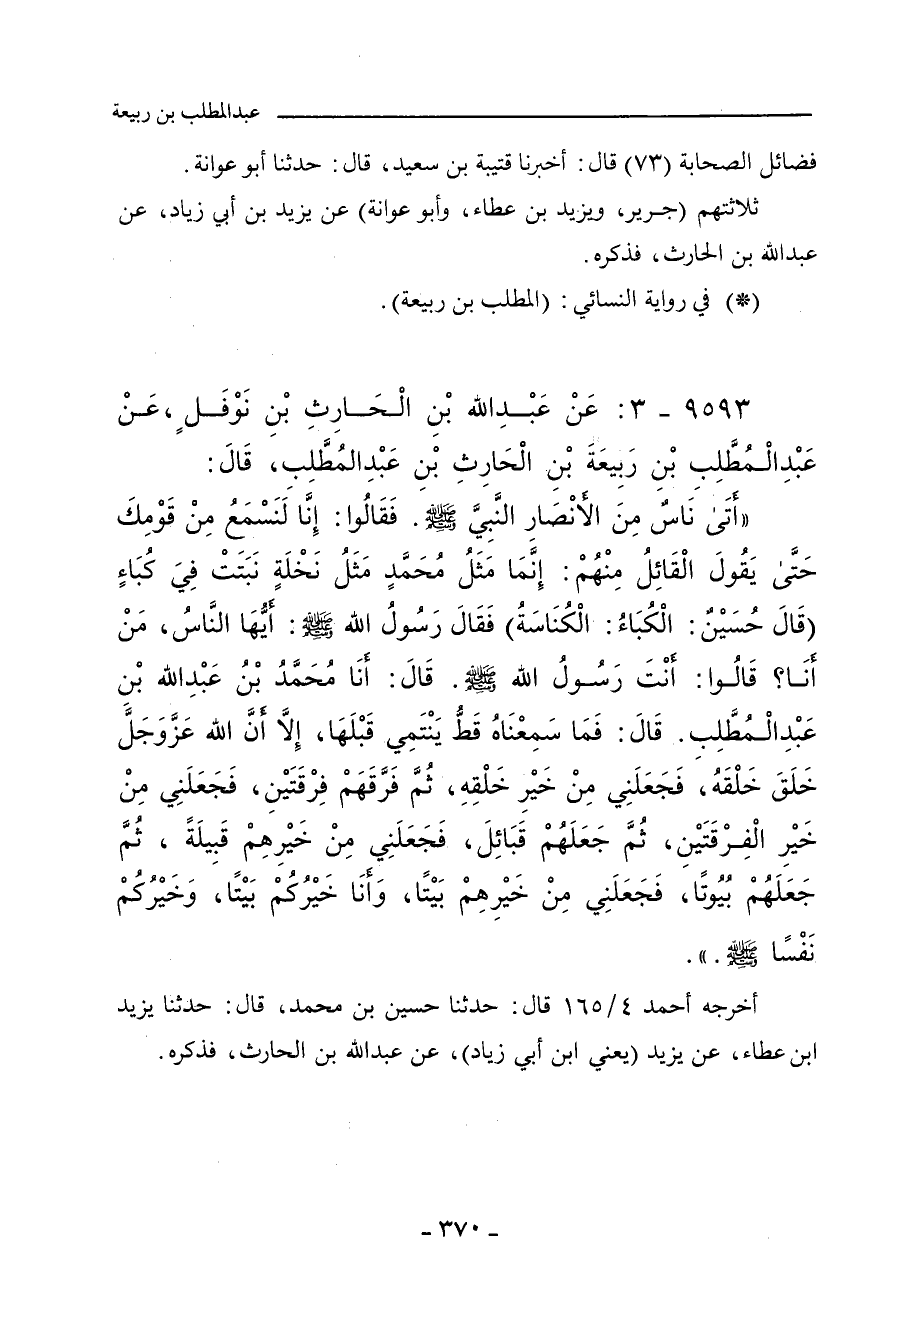 عبدالمطلب بن ربيعة
فضائل الصحابة (٧٣) قال: أخبرنا قتيبة بن سعيد، قال: حدثنا أبو عوانة.
ثلاثتهم (جرير، ويزيد بن عطاء، وأبو عوانة) عن يزيد بن أبي زياد، عن
عبدالله بن الحارث، فذكره.
(*) في رواية النسائي: (المطلب بن ربيعة).
٩٥٩٣ - ٣: عَنْ عَبْدِاللهِ بْنِ الْحَارِثِ بْنِ نَوْفَلٍ، عَنْ
عَبْدِالْمُطَّلِبِ بْنِ رَبِيعَةَ بْنِ الْحَارِثِ بْنِ عَبْدِالمُطَّلِبِ، قَالَ:
«أَتَىٰ نَاسٌ مِنَ الأَنْصَارِ النَّبِيَّ ﷺ. فَقَالُوا: إِنَّا لَنَسْمَعُ مِنْ قَوْمِكَ
حَتَّىٰ يَقُولَ الْقَائِلُ مِنْهُمْ: إِنَّمَا مَثَلُ مُحَمَّدٍ مَثَلُ نَخْلَةٍ نَبَتَتْ فِي كَبَاءٍ
(قَالَ حُسَيْنٌ: الْكُبَاءُ: الْكُنَاسَةُ) فَقَالَ رَسُولُ اللهِ ﷺ: أَيُّهَا النَّاسُ، مَنْ
أَنَا؟ قَالُوا: أَنْتَ رَسُولُ اللهِ ﷺ. قَالَ: أَنَا مُحَمَّدُ بْنُ عَبْدِاللهِ بْنِ
عَبْدِالْمُطَّلِبِ. قَالَ: فَمَا سَمِعْنَاهُ قَطُّ يَنْتَمِي قَبْلَهَا، إِلَّا أَنَّ اللهَ عَزَّوَجَلَّ
خَلَقَ خَلْقَهُ، فَجَعَلَنِي مِنْ خَيْرِ خَلْقِهِ، ثُمَّ فَرَّقَهَمْ فِرْقَتَيْنِ، فَجَعَلَنِي مِنْ
خَيْرِ الْفِرْقَتَيْنِ، ثُمَّ جَعَلَهُمْ قَبَائِلَ، فَجَعَلَنِي مِنْ خَيْرِهِمْ قَبِيلَةً، ثُمَّ
جَعَلَهُمْ بُيُوتًا، فَجَعَلَنِي مِنْ خَيْرِهِمْ بَيْتًا، وَأَنَا خَيْرُكُمْ بَيْتًا، وَخَيْرُكُمْ
نَفْسًا ﷺ.».
أخرجه أحمد ٤/١٦٥ قال: حدثنا حسين بن محمد، قال: حدثنا يزيد
ابن عطاء، عن يزيد (يعني ابن أبي زياد)، عن عبدالله بن الحارث، فذكره.
- ٣٧٠ -